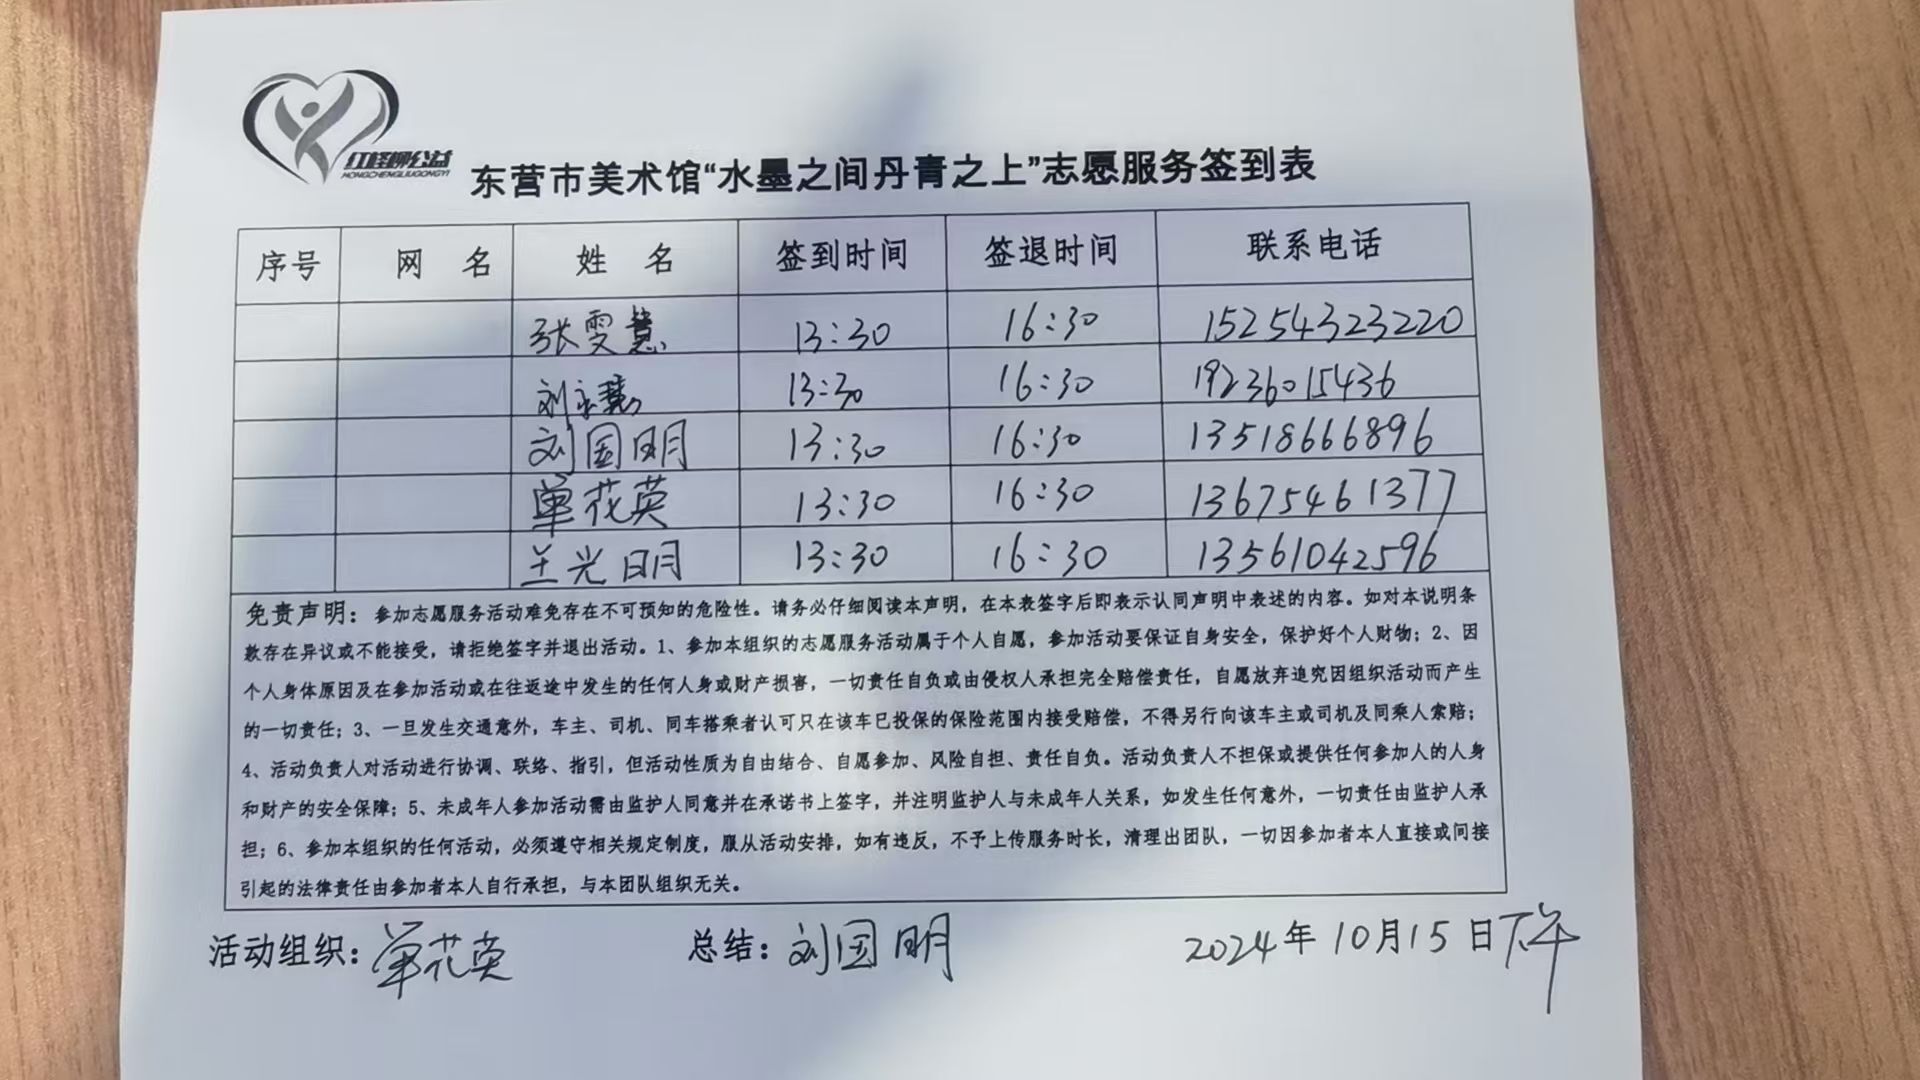 红柽柳公益
HONGCHENGLIUGONGYI
东营市美术馆“水墨之间丹青之上”志愿服务签到表
序号 网 名 姓 名 签到时间 签退时间 联系电话
张雯慧 13:30 16:30 15254323220
刘 慧 13:30 16:30 19236015436
刘国明 13:30 16:30 13518666896
单花英 13:30 16:30 13675461377
王光明 13:30 16:30 13561042596
免责声明：参加志愿服务活动难免存在不可预知的危险性。请务必仔细阅读本声明，在本表签字后即表示认同声明中表述的内容。如对本说明条
款存在异议或不能接受，请拒绝签字并退出活动。1、参加本组织的志愿服务活动属于个人自愿，参加活动要保证自身安全，保护好个人财物；2、因
个人身体原因及在参加活动或在往返途中发生的任何人身或财产损害，一切责任自负或由侵权人承担完全赔偿责任，自愿放弃追究因组织活动而产生
的一切责任；3、一旦发生交通意外，车主、司机、同车搭乘者认可只在该车已投保的保险范围内接受赔偿，不得另行向该车主或司机及同乘人索赔；
4、活动负责人对活动进行协调、联络、指引，但活动性质为自由结合、自愿参加、风险自担、责任自负。活动负责人不担保或提供任何参加人的人身
和财产的安全保障；5、未成年人参加活动需由监护人同意并在承诺书上签字，并注明监护人与未成年人关系，如发生任何意外，一切责任由监护人承
担；6、参加本组织的任何活动，必须遵守相关规定制度，服从活动安排，如有违反，不予上传服务时长，清理出团队，一切因参加者本人直接或间接
引起的法律责任由参加者本人自行承担，与本团队组织无关。
活动组织：单花英 总结：刘国明 2024年10月15日下午